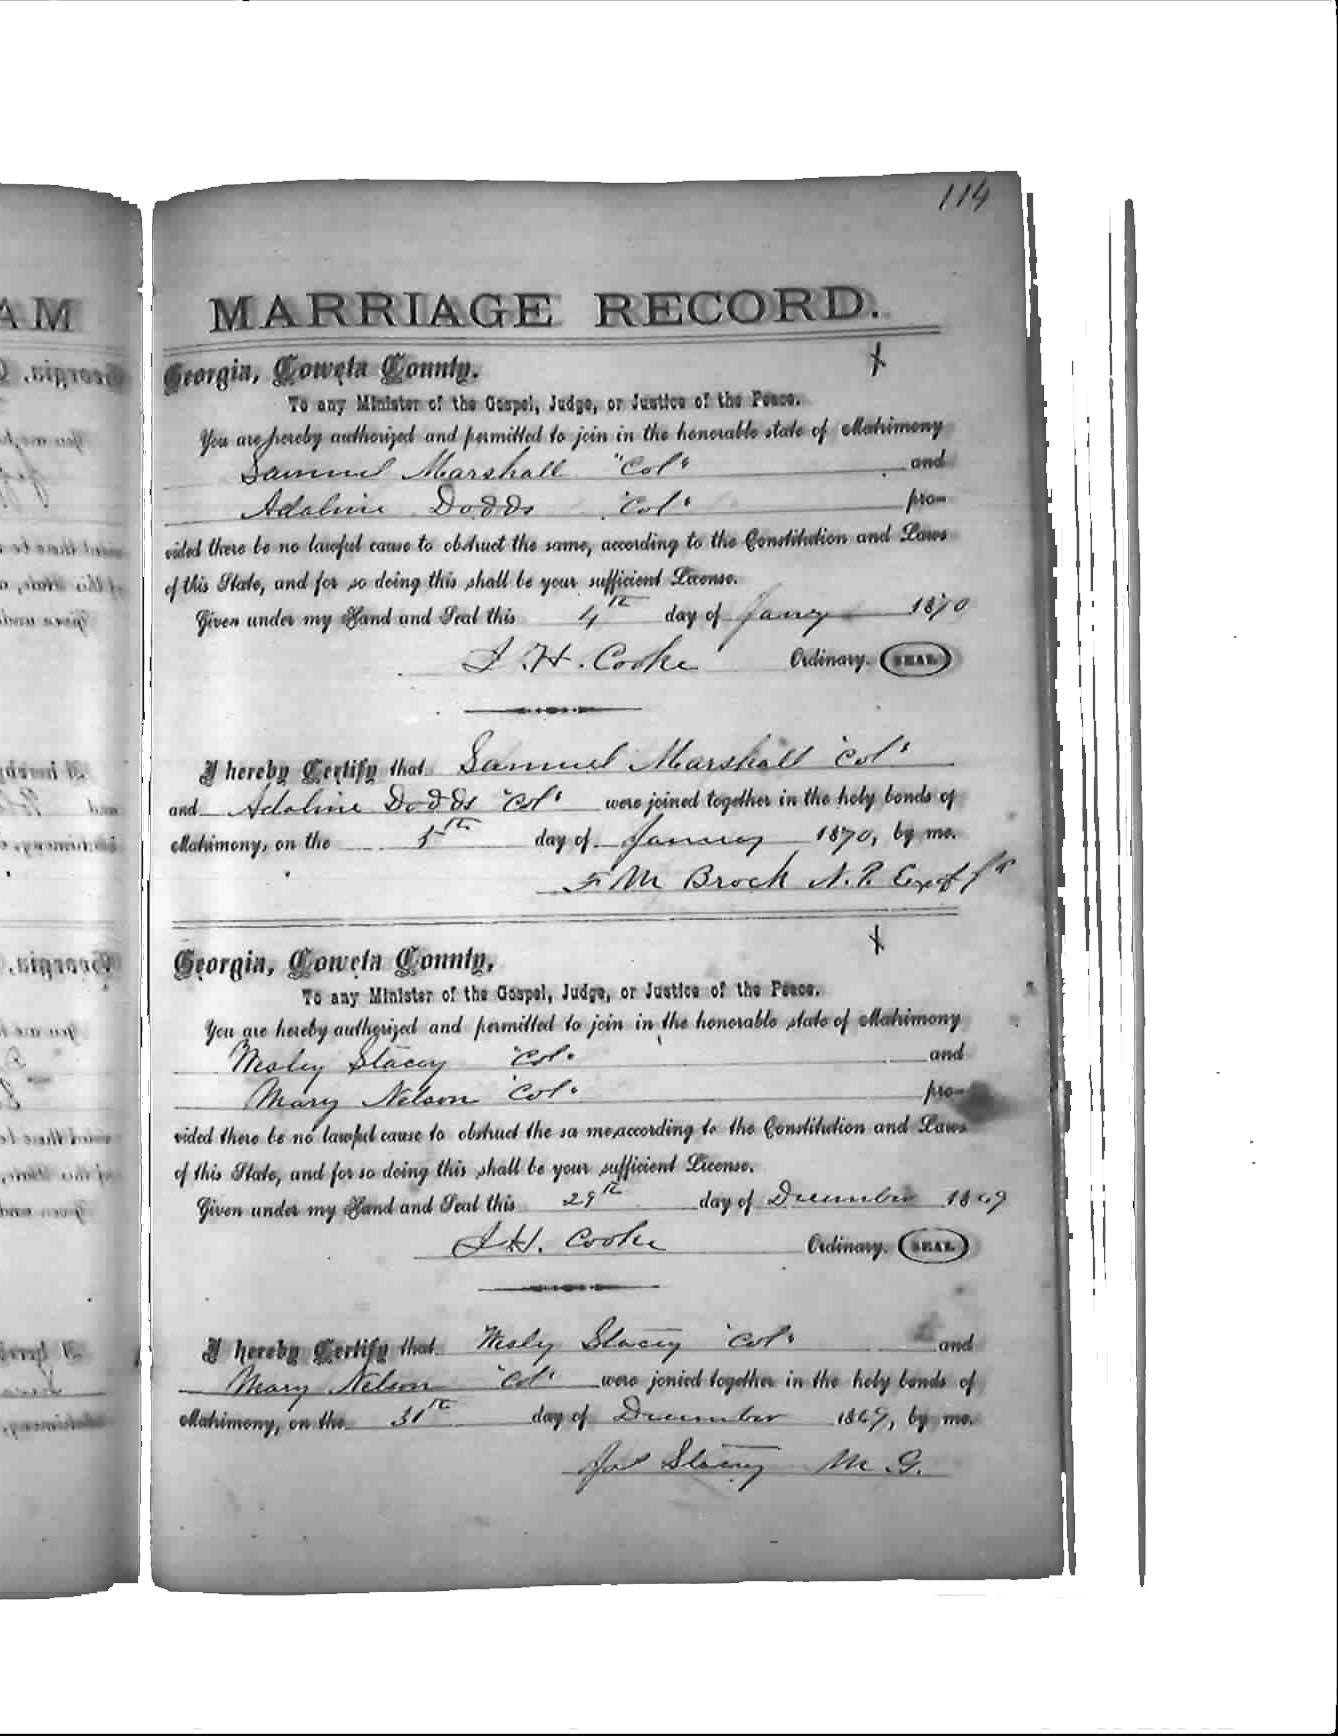 114
MARRIAGE RECORD.
Georgia, Coweta County.
To any Minister of the Gospel, Judge, or Justice of the Peace.
You are hereby authorized and permitted to join in the honorable state of Matrimony
Samuel Marshall "Col" and
Adaline Dodds "Col" pro-
vided there be no lawful cause to obstruct the same, according to the Constitution and Laws
of this State, and for so doing this shall be your sufficient License.
Given under my Hand and Seal this 4th day of Jany 1870
J. H. Cooke Ordinary. SEAL
I hereby Certify that Samuel Marshall "Col"
and Adaline Dodds "Col" were joined together in the holy bonds of
Matrimony, on the 5th day of January 1870, by me.
F M Brock N. P. Ex off
Georgia, Coweta County,
To any Minister of the Gospel, Judge, or Justice of the Peace.
You are hereby authorized and permitted to join in the honorable state of Matrimony
Wesley Stacey "Col" and
Mary Nelson "Col" pro-
vided there be no lawful cause to obstruct the sa me, according to the Constitution and Laws
of this State, and for so doing this shall be your sufficient License.
Given under my Hand and Seal this 29th day of December 1869
J H. Cooke Ordinary. SEAL
I hereby Certify that Wesly Stacey "Col" and
Mary Nelson "Col" were jonied together in the holy bonds of
Matrimony, on the 31th day of December 1869, by me.
Stacey M. G.